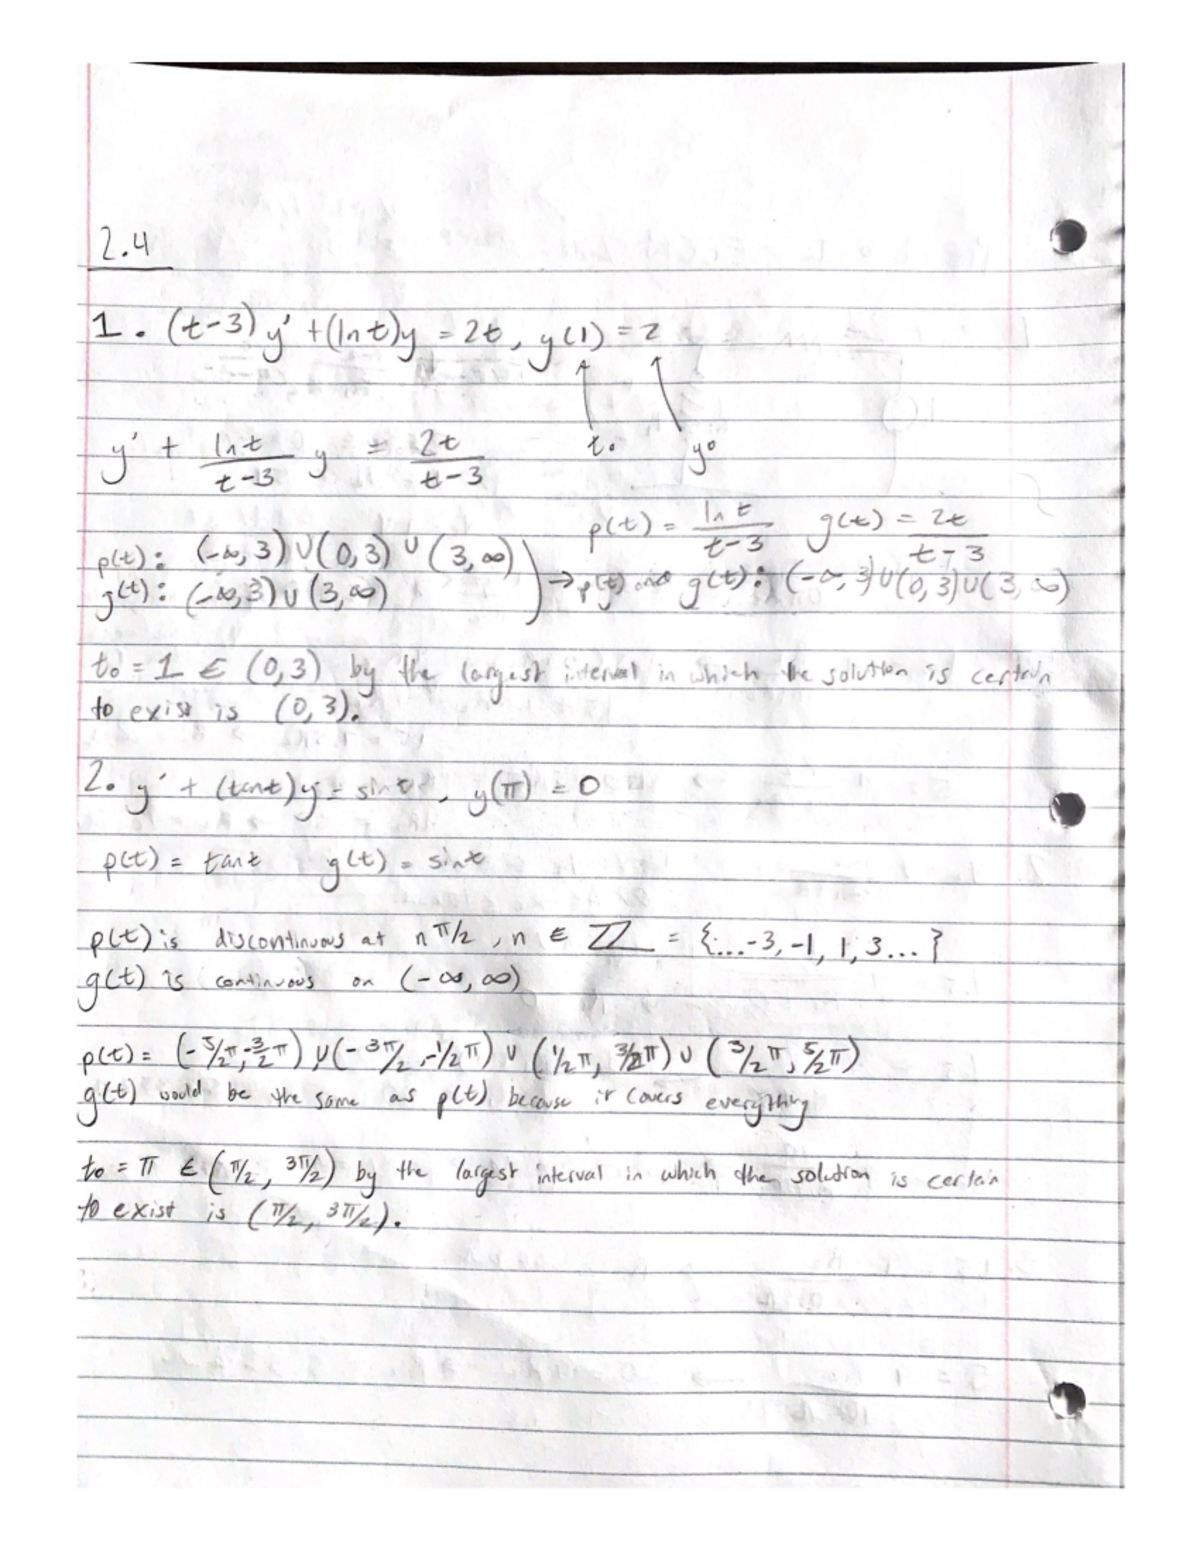 2.4
1. (t-3) y' + (ln t)y = 2t, y(1) = 2
t₀ y⁰
y' + ln t / t-3 y = 2t / t-3
p(t) = ln t / t-3 g(t) = 2t / t-3
p(t): (-∞, 3) ∪ (0, 3) ∪ (3, ∞)
g(t): (-∞, 3) ∪ (3, ∞)
→ p(t) and g(t): (-∞, 3) ∪ (0, 3) ∪ (3, ∞)
t₀ = 1 ∈ (0, 3) by the largest interval in which the solution is certain
to exist is (0, 3).
2. y' + (tan t)y = sin t, y(π) = 0
p(t) = tan t g(t) = sin t
p(t) is discontinuous at n π/2, n ∈ ℤ = {...-3, -1, 1, 3...}
g(t) is continuous on (-∞, ∞)
p(t) = (-5/2π, -3/2π) ∪ (-3π/2, -1/2π) ∪ (1/2π, 3/2π) ∪ (3/2π, 5/2π)
g(t) would be the same as p(t) because it covers everything
t₀ = π ∈ (π/2, 3π/2) by the largest interval in which the solution is certain
to exist is (π/2, 3π/2).